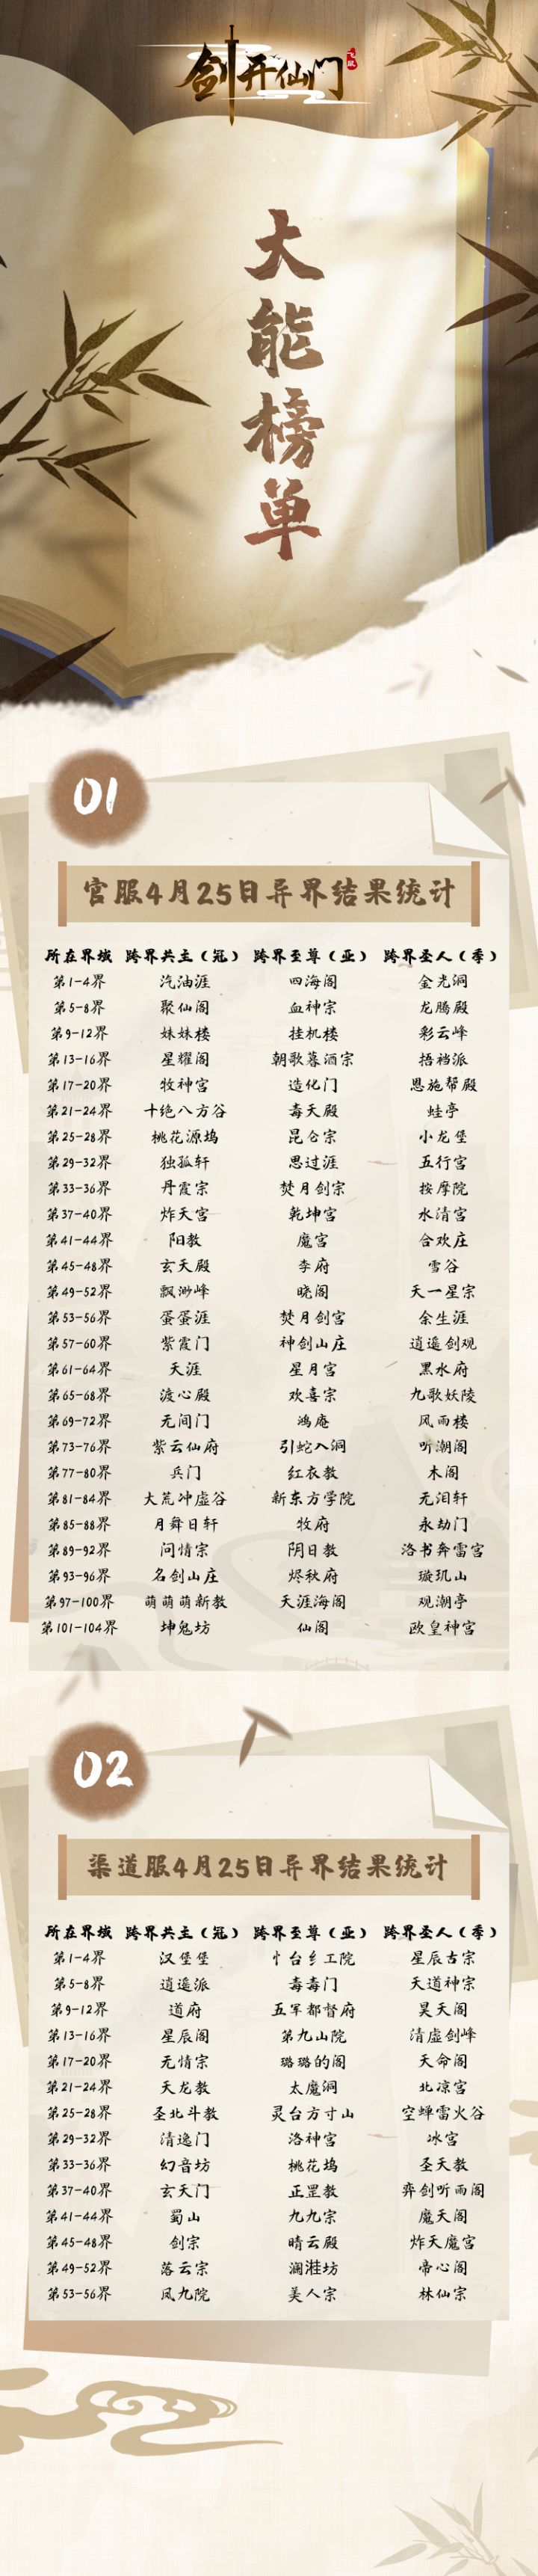 剑开仙门
飞跃
大能榜单
01
官服4月25日异界结果统计
所在界域 跨界共主（冠） 跨界至尊（亚） 跨界圣人（季）
第1-4界 汽油涯 四海阁 金光洞
第5-8界 聚仙阁 血神宗 龙腾殿
第9-12界 妹妹楼 挂机楼 彩云峰
第13-16界 星耀阁 朝歌暮酒宗 捂裆派
第17-20界 牧神宫 造化门 恩施帮殿
第21-24界 十绝八方谷 毒天殿 蛙亭
第25-28界 桃花源坞 昆仑宗 小龙堡
第29-32界 独孤轩 思过涯 五行宫
第33-36界 丹霞宗 焚月剑宗 按摩院
第37-40界 炸天宫 乾坤宫 水清宫
第41-44界 阳教 魔宫 合欢庄
第45-48界 玄天殿 李府 雪谷
第49-52界 飘渺峰 晓阁 天一星宗
第53-56界 蛋蛋涯 焚月剑宫 余生涯
第57-60界 紫霞门 神剑山庄 逍遥剑观
第61-64界 天涯 星月宫 黑水府
第65-68界 渡心殿 欢喜宗 九歌妖陵
第69-72界 无间门 鸿庵 风雨楼
第73-76界 紫云仙府 引蛇入洞 听潮阁
第77-80界 兵门 红衣教 木阁
第81-84界 大荒冲虚谷 新东方学院 无泪轩
第85-88界 月舞日轩 牧府 永劫门
第89-92界 问情宗 阴日教 洛书奔雷宫
第93-96界 名剑山庄 烬秋府 璇玑山
第97-100界 萌萌萌新教 天涯海阁 观潮亭
第101-104界 坤兔坊 仙阁 欧皇神宫
02
渠道服4月25日异界结果统计
所在界域 跨界共主（冠） 跨界至尊（亚） 跨界圣人（季）
第1-4界 汉堡堡 忄台纟工院 星辰古宗
第5-8界 逍遥派 毒毒门 天道神宗
第9-12界 道府 五军都督府 昊天阁
第13-16界 星辰阁 第九山院 清虚剑峰
第17-20界 无情宗 璐璐的阁 天命阁
第21-24界 天龙教 太魔洞 北凉宫
第25-28界 圣北斗教 灵台方寸山 空蝉雷火谷
第29-32界 清逸门 洛神宫 冰宫
第33-36界 幻音坊 桃花坞 圣天教
第37-40界 玄天门 正罡教 弈剑听雨阁
第41-44界 蜀山 九九宗 魔天阁
第45-48界 剑宗 晴云殿 炸天魔宫
第49-52界 落云宗 澜湴坊 帝心阁
第53-56界 凤九院 美人宗 林仙宗